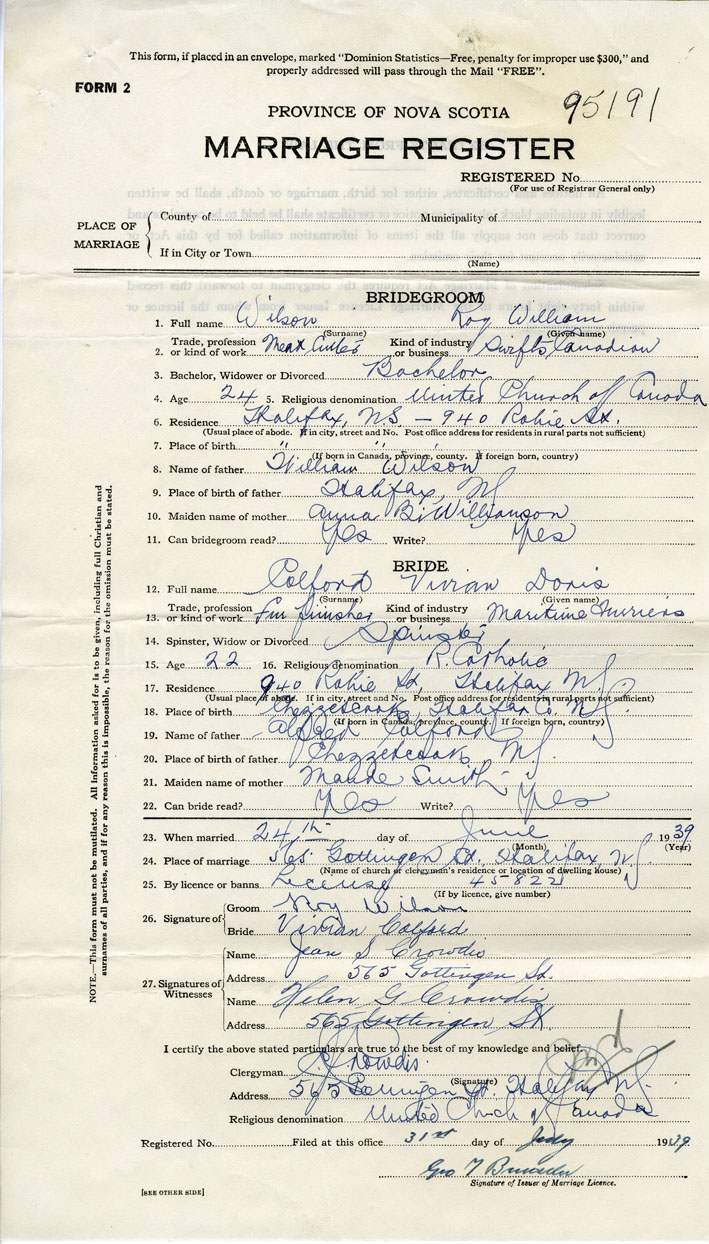 This form, if placed in an envelope, marked "Dominion Statistics—Free, penalty for improper use $300," and
properly addressed will pass through the Mail "FREE".
FORM 2
95191
PROVINCE OF NOVA SCOTIA
MARRIAGE REGISTER
REGISTERED No.
(For use of Registrar General only)
PLACE OF MARRIAGE
County of Municipality of
If in City or Town
(Name)
BRIDEGROOM
1. Full name Wilson Roy William
(Surname) (Given name)
2. Trade, profession or kind of work Meat Cutter Kind of industry or business Swifts Canadian
3. Bachelor, Widower or Divorced Bachelor
4. Age 24 5. Religious denomination United Church of Canada
6. Residence Halifax, N.S. – 940 Robie St.
(Usual place of abode. If in city, street and No. Post office address for residents in rural parts not sufficient)
7. Place of birth " " "
(If born in Canada, province, county. If foreign born, country)
8. Name of father William Wilson
9. Place of birth of father Halifax, NS
10. Maiden name of mother Anna B. Williamson
11. Can bridegroom read? Yes Write? Yes
BRIDE
12. Full name Colford Vivian Doris
(Surname) (Given name)
13. Trade, profession or kind of work Fur finisher Kind of industry or business Maritime Furriers
14. Spinster, Widow or Divorced Spinster
15. Age 22 16. Religious denomination R. Catholic
17. Residence 940 Robie St, Halifax NS
(Usual place of abode. If in city, street and No. Post office address for residents in rural parts not sufficient)
18. Place of birth Chezzetcook, Halifax Co. NS
(If born in Canada, province, county. If foreign born, country)
19. Name of father Alfred Colford
20. Place of birth of father Chezzetcook, NS
21. Maiden name of mother Maude Smith
22. Can bride read? Yes Write? Yes
23. When married 24th day of June 1939
(Month) (Year)
24. Place of marriage 565 Gottingen St, Halifax, NS
(Name of church or clergyman's residence or location of dwelling house)
25. By licence or banns License 45822
(If by licence, give number)
26. Signature of
Groom Roy Wilson
Bride Vivian Colford
27. Signatures of Witnesses
Name Jean S Crowdis
Address 565 Gottingen St.
Name Helen G Crowdis
Address 565 Gottingen St.
I certify the above stated particulars are true to the best of my knowledge and belief.
Clergyman Crowdis
(Signature)
Address 565 Gottingen St. Halifax NS
Religious denomination United Church of Canada
Registered No. Filed at this office 31st day of July 1939
Geo T
Signature of Issuer of Marriage Licence.
[SEE OTHER SIDE]
NOTE.—This form must not be mutilated. All Information asked for is to be given, including full Christian and
surnames of all parties, and if for any reason this is impossible, the reason for the omission must be stated.